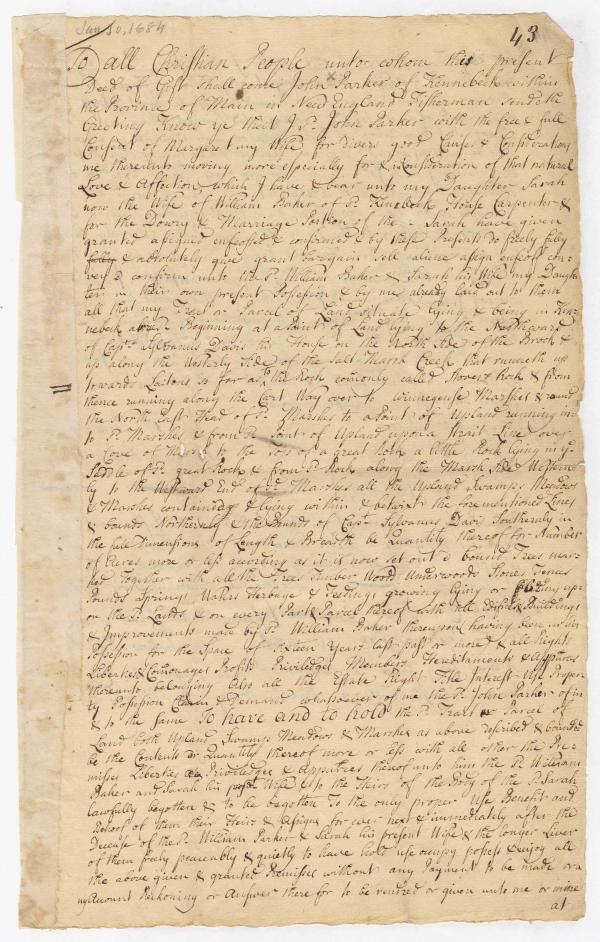 Jan 10, 1684
43
To all Christian People unto whom this present
Deed of Gift shall come John Parker of Kennebeck within
the Province of Main in New England Fisherman sendeth
Greeting Know ye that I Sd. John Parker with the free & full
Consent of Margaret my Wife, for divers good Causes & Considerations
me thereunto moving more especially for & in consideration of that natural
Love & Affection, which I have & bear unto my Daughter Sarah
now the Wife of William Baker of Sd. Kenebeck House Carpenter &
for the Dowry & Marriage Portion of the Sarah have given
granted assigned enfeoffed & confirmed & by these Presents do freely fully
fully & absolutely give grant bargain sell aliene assign enfeoff con-
vey & confirm unto the Sd. William Baker & Sarah his Wife my Daugh
ter, in their own present Possession & by me already laid out to them
all that my Tract or Parcel of Land situate lying & being in Ken-
nebeck Beginning at a Point of Land lying to the Northward
of Capt. Sylvanus Davis his House on the North Side of the Brook &
up along the Side of the Salt Marsh Creek that runneth up
towards so far as the Rock comonly called Rock & from
thence running along the Cart Way over to Marshes & round
the North East Head of Sd. Marshes to a Point of Upland running in
to Sd. Marshes & from Sd. Point of Upland upon a Strait Line over
a Cove of Marsh to the a little Rock lying in ye
Saddle of Sd. great Rock & from Sd. Rock along the Marsh Side Western
ly to the Westward End of Sd. Marshes all the Upland Swamps Meadows
& Marshes contained & lying within & betwixt the fore mentioned Lines
& bounds Northerly & the Bounds of Capt. Sylvanus Davis Southernly in
the full Dimensions of Length & Breadth be Quantity thereof for Number
of Acres more or less according as it is now set out & bound Trees mar-
ked Together with all the Trees Timber Woods Underwoods Stones Fences
Pounds Springs Waters Herbage & Feedings growing lying or being up-
on the Sd. Lands & on every Part & Parcel thereof with all Edifices Buildings
& Improvements made by Sd. William Baker thereupon having been in his
Possession for the Space of Years last past or more & all Rights
Liberties Comonages Profits Priviledges Members Hereditaments &
thereunto belonging Also all the Estate Right Title Interest Use Proper
ty Possession Claim & Demand whatsoever of me the Sd. John Parker of in
& to the same To have and to hold the Sd. Tract or Parcel of
Land both Upland Swamps Meadows & Marshes as above described & bounded
be the Contents or Quantity thereof more or less with all other the Pre-
misses Liberties Priviledges & thereof unto him the Sd. William
Baker and Sarah his Wife & to the Heirs of the Body of the Sd. Sarah
lawfully begotten & to be begotten To the only proper Use Benefit and
Behoof of them their Heirs & Assigns for ever next & immediately after the
Decease of the Sd. William Parker & Sarah his present Wife & the longer Liver
of them freely peaceably & quietly to have hold use occupy possess & enjoy all
the above given & granted Premisses without any Payment to be made or a-
ny Account Reckoning or Answer there for to be rendred or given unto me or mine
at